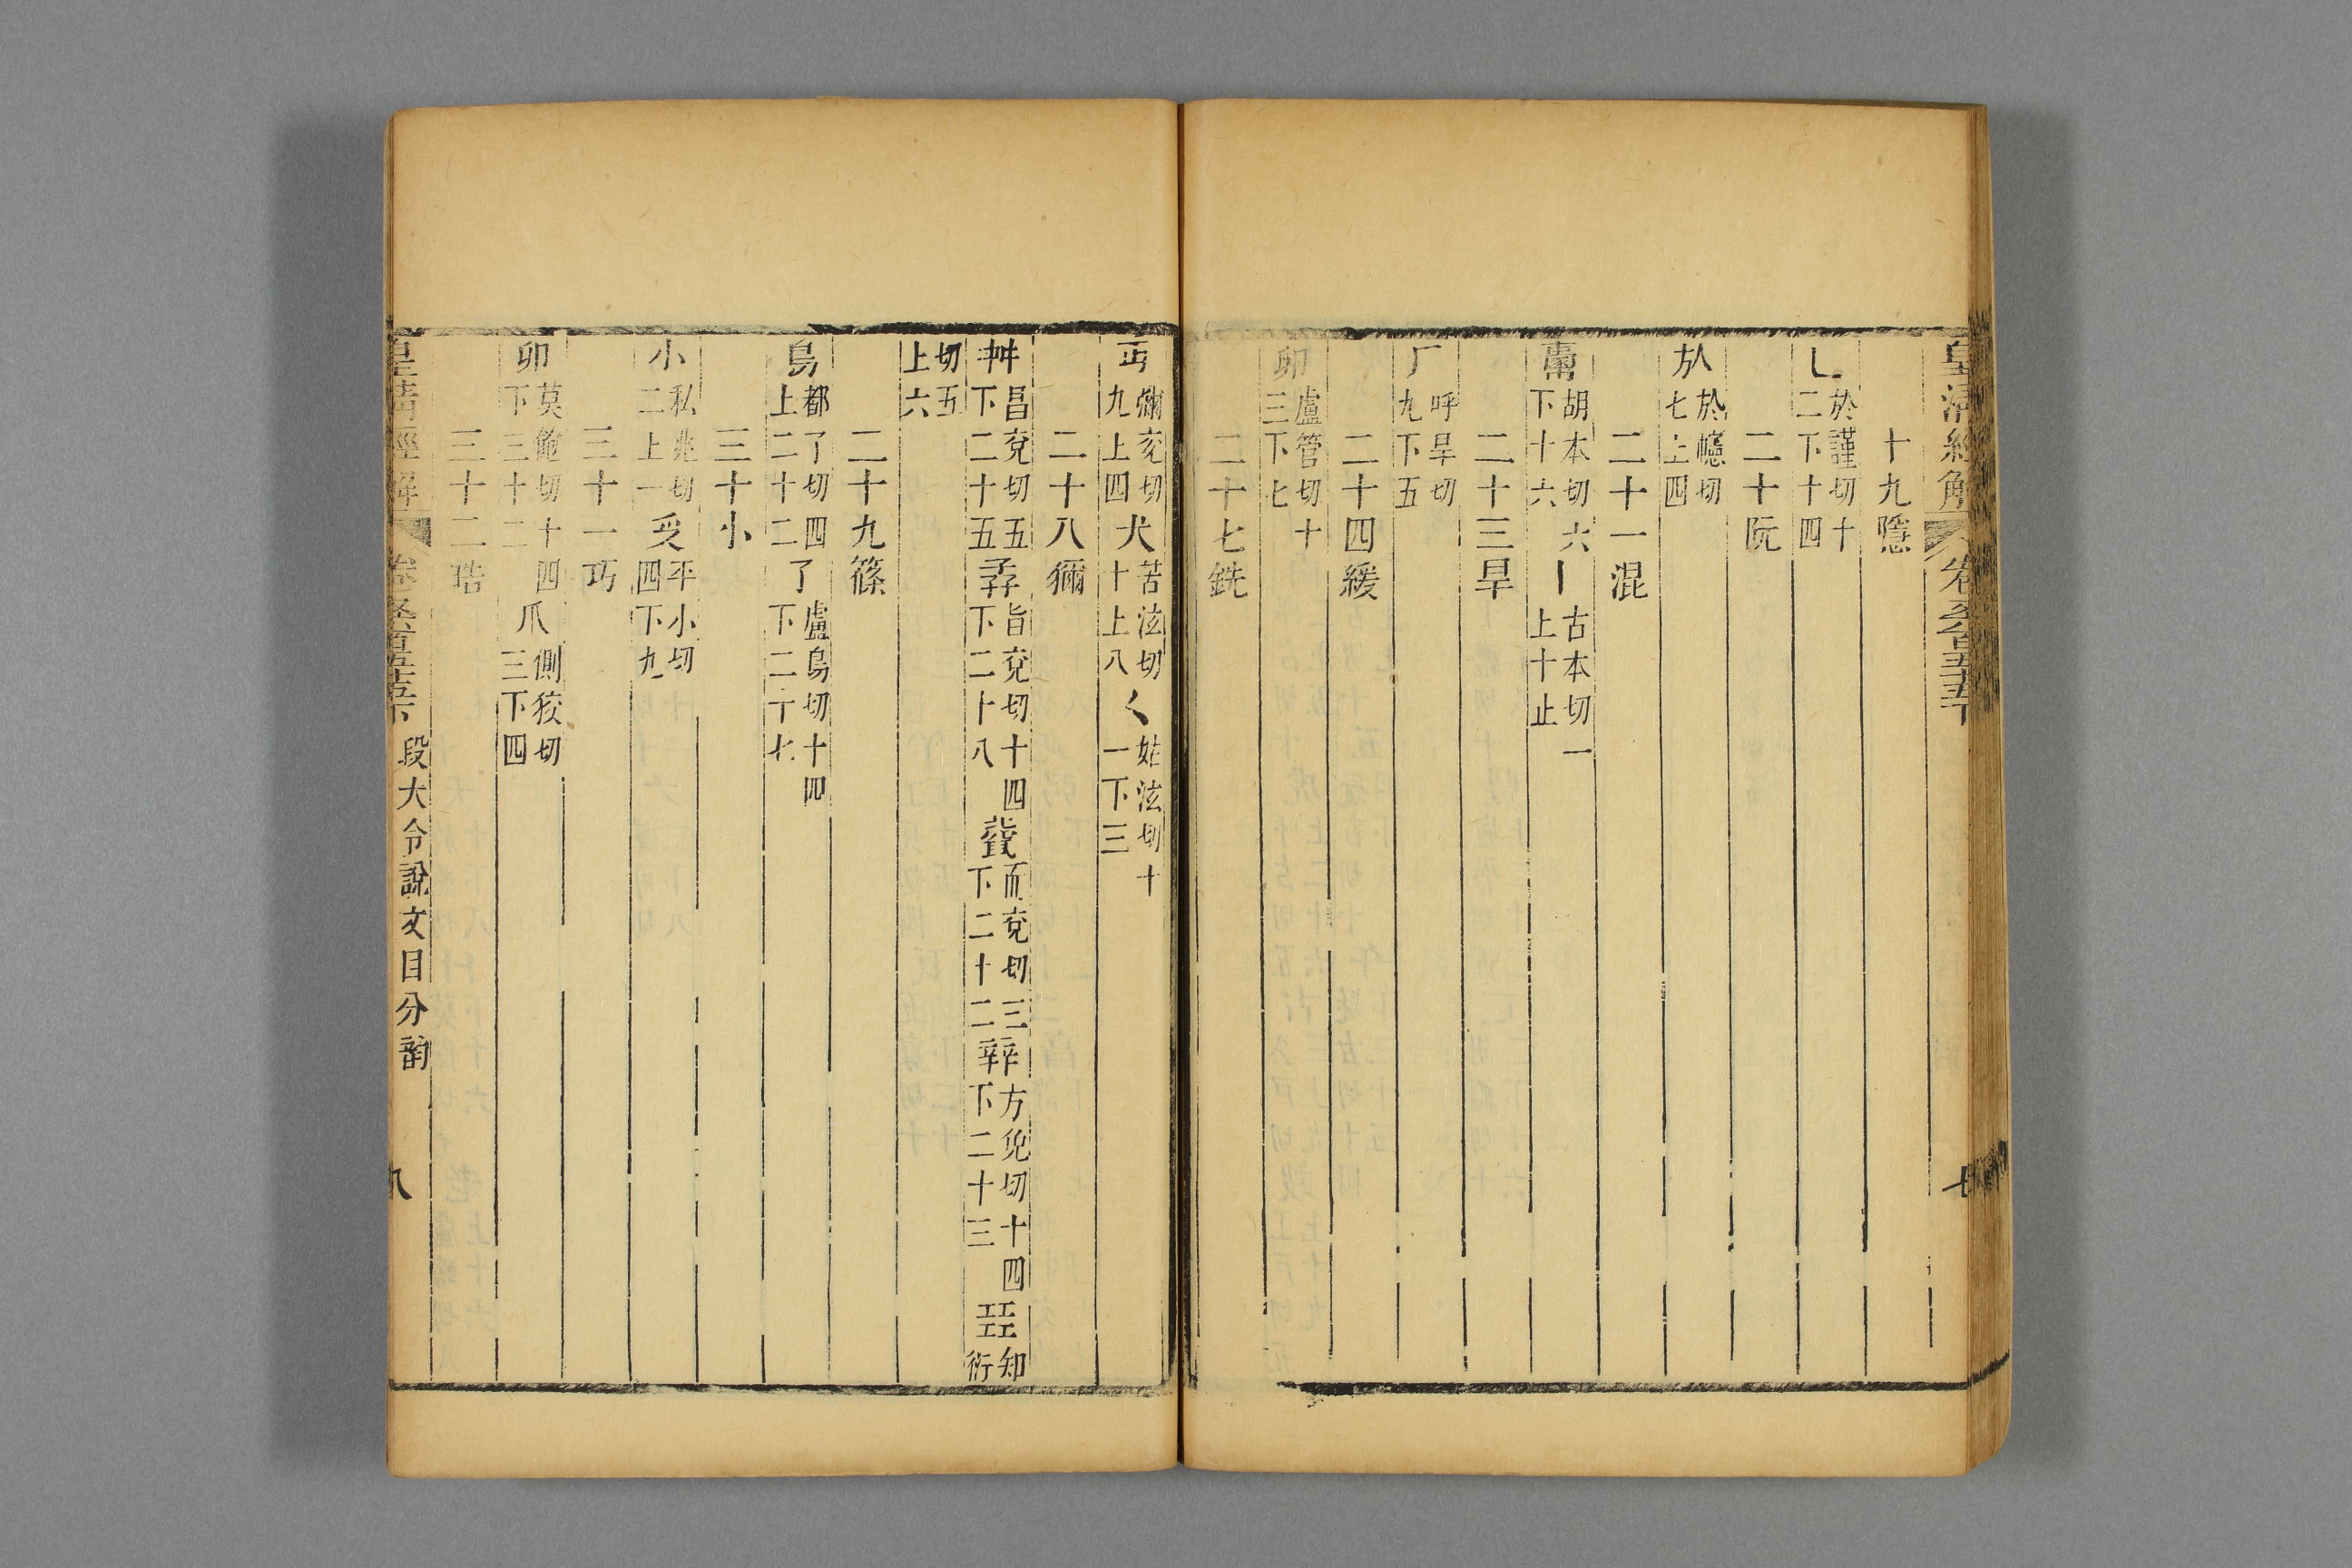 皇清經解 卷六百五十五下 七
十九隱
乚於謹切十二下十四
二十阮
㫃於幰切七上四
二十一混
䰜胡本切六下十六丨古本切一上十止
二十三旱
厂呼旱切九下五
二十四緩
卵盧管切十三下七
二十七銑
丏彌兖切九上四犬苦泫切十上八𡿨姑泫切十一下三
二十八獮
舛昌兖切五下二十五孨旨兖切十四下二十八㼱而兖切三下二十二辡方免切十四下二十三㠭知衍
切五上六
二十九篠
鳥都了切四上二十二了盧鳥切十四下二十七
三十小
小私兆切二上一𠬪平小切四下九
三十一巧
卯莫飽切十四下三十二爪側狡切三下四
三十二晧
皇清經解 卷六百五十五下 段大令說文目分韵 八